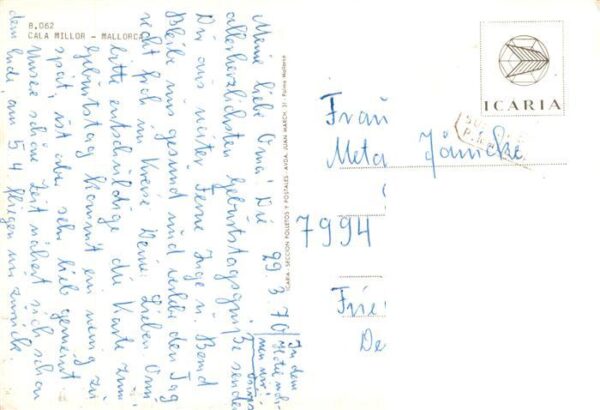 8.062
CALA MILLOR - MALLORCA
29. 3. 70
Meine liebe Oma! Die
allerherzlichsten Geburtstagsgrüße senden
Dir aus weiter Ferne Inge u. Bernd
Bleibe uns gesund und verlebe den Tag
recht froh im Kreise Deiner Lieben. Omi
bitte entschuldige die Karte zum
Geburtstag kommt ein wenig zu
spät, ist aber sehr lieb gemeint
Unsere schöne Zeit nähert sich schon
dem Ende, am 5 4 fliegen wir zurück.
In dem
Hotel
ICARIA. SECCION FOLLETOS Y POSTALES. AVDA. JUAN MARCH, 31 - Palma Mallorca
ICARIA
Frau
Meta Jänicke
7994
Frie
De